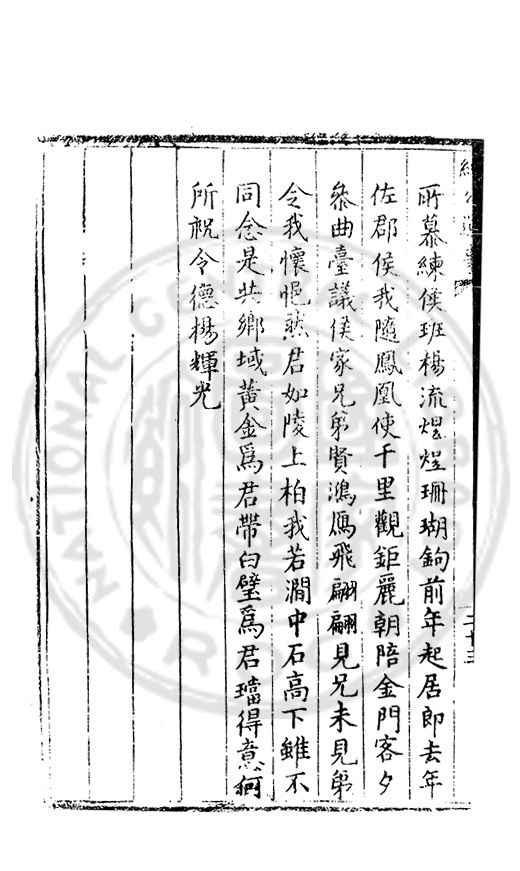 所慕練侯班楊流煜煜珊瑚鉤前年起居郎去年
佐郡侯我隨鳳凰使千里觀鉅麗朝陪金門客夕
叅曲臺議侯家兄弟賢鴻鴈飛翩翩見兄未見弟
令我懷悒然君如陵上柏我若澗中石高下雖不
同念是共鄉域黃金為君帶白璧為君璫得意何
所祝令德楊輝光
二十三
NATIONAL CENTRAL LIBRARY